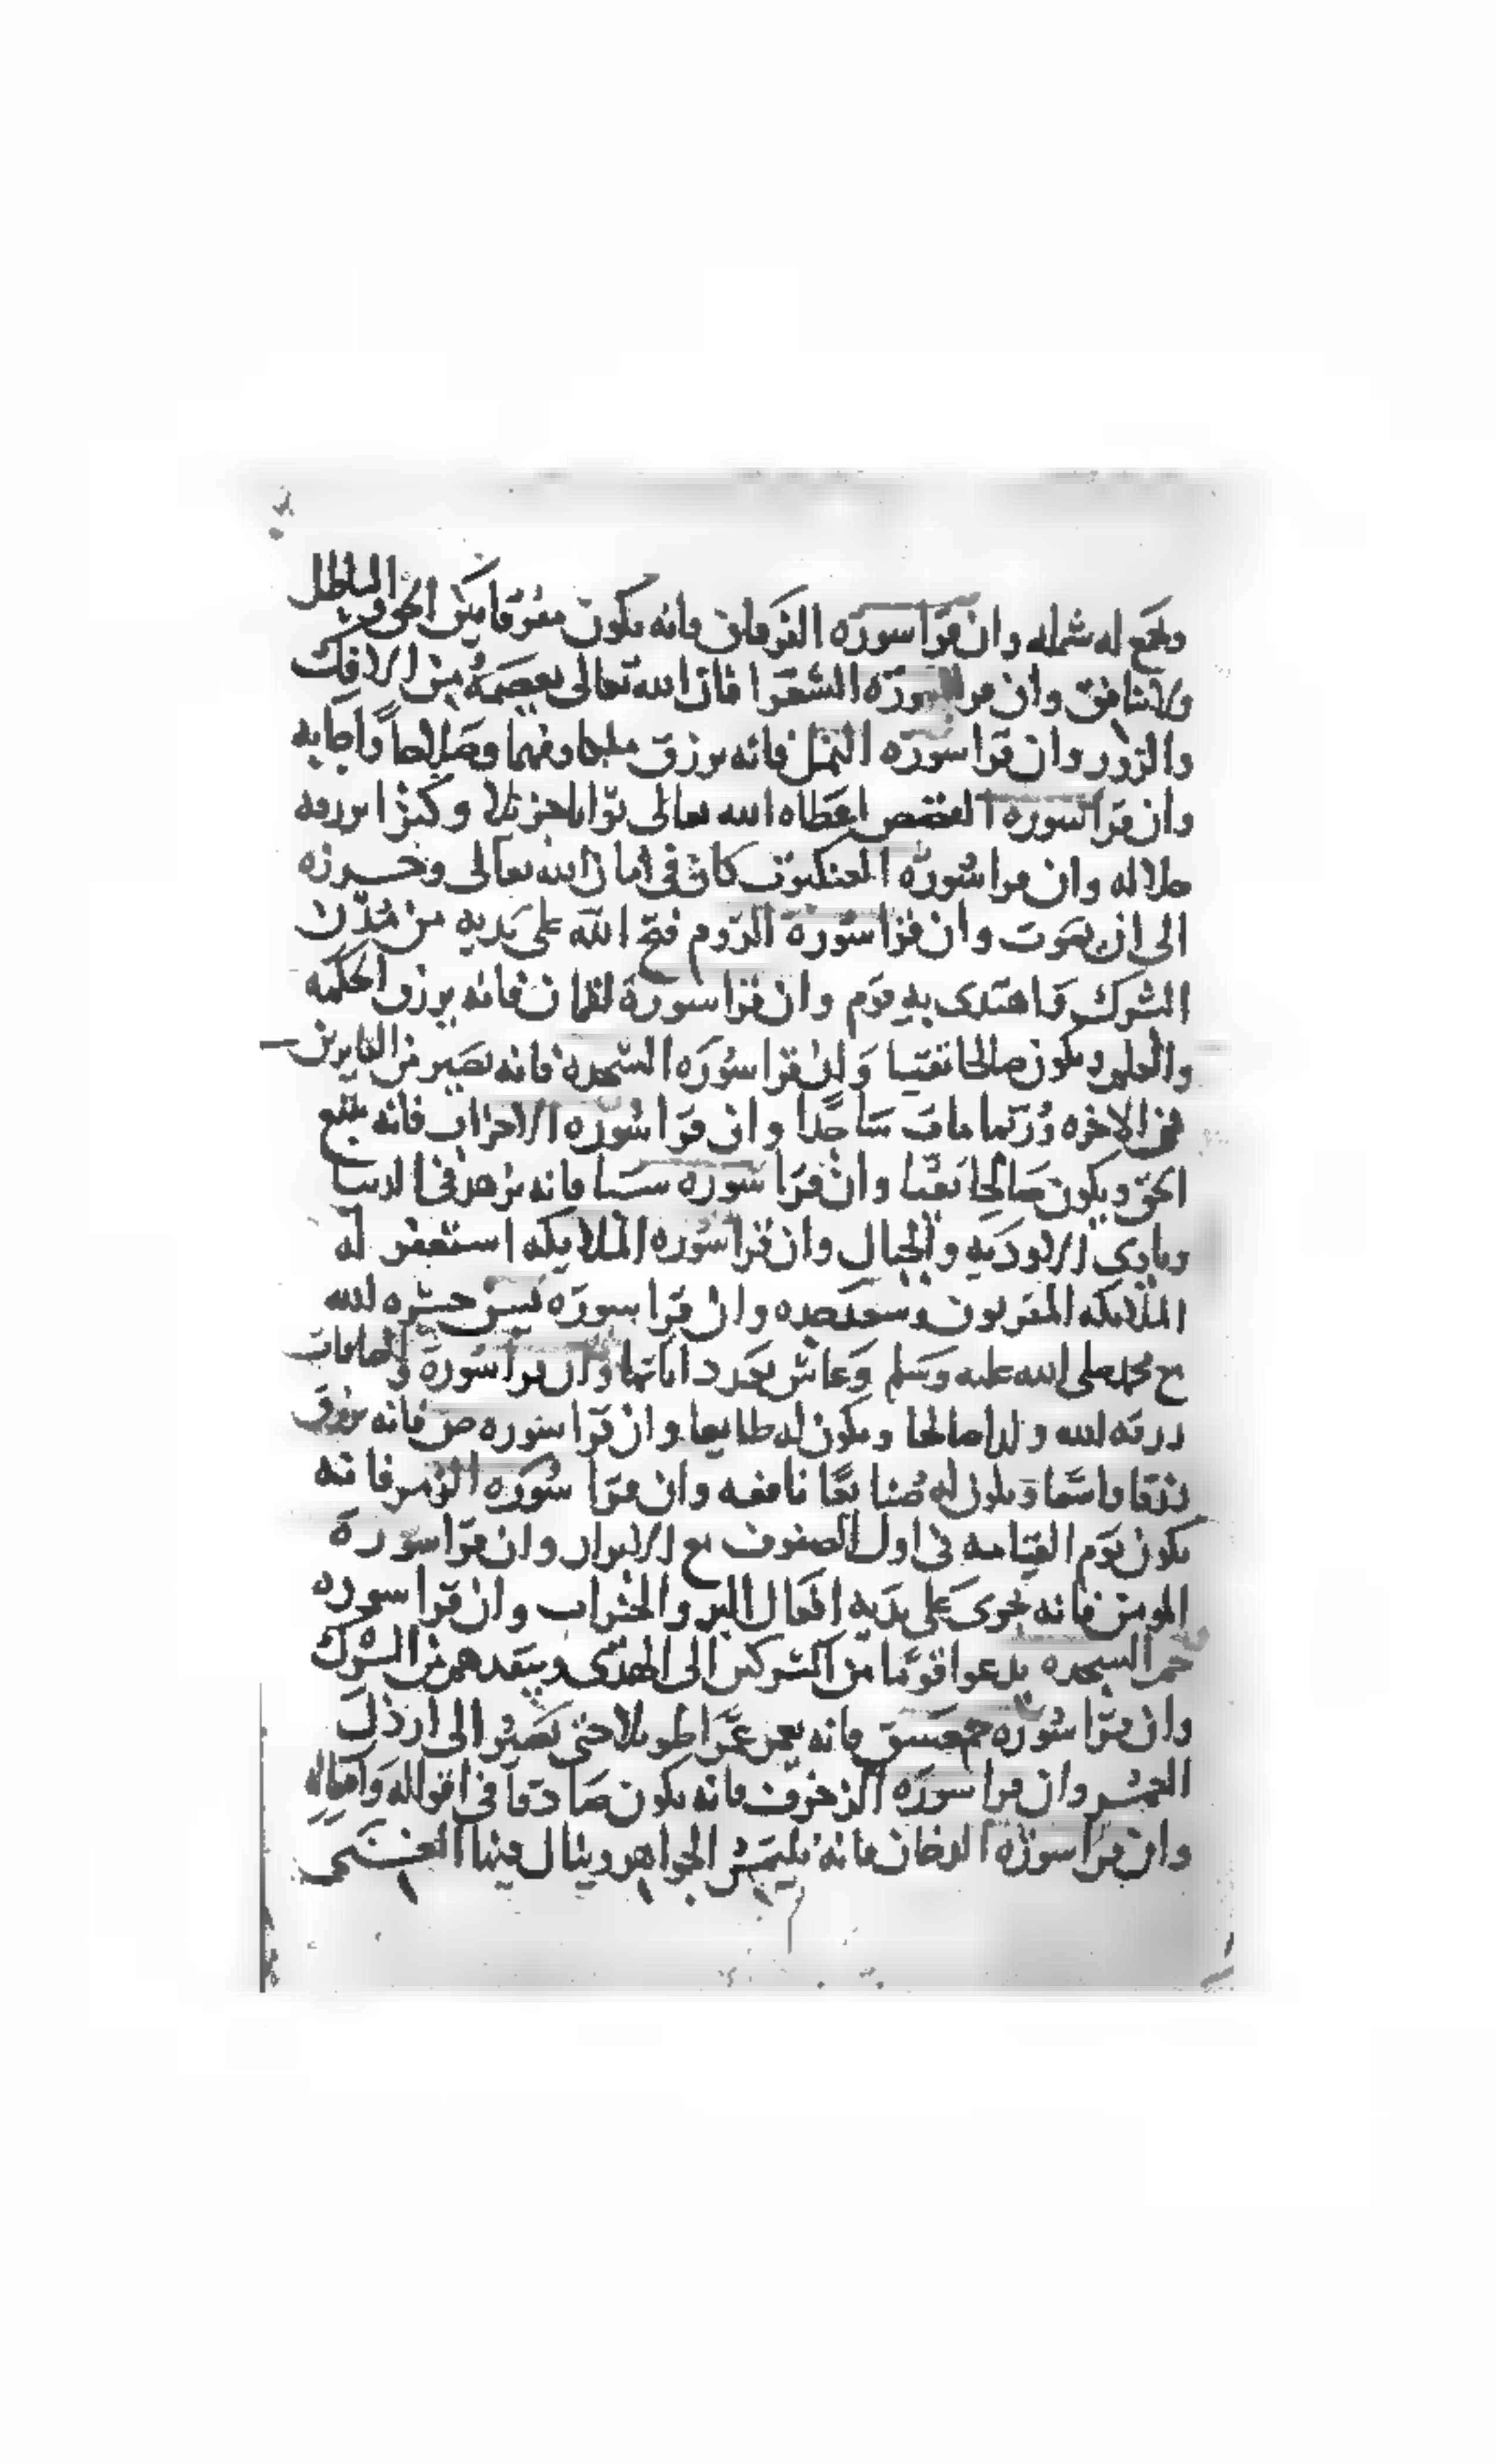 ويجمع له شمله وان قرا سورة الفرقان فانه يكون مفرقا بين الحق والباطل
ولا ينافق وان قرا سورة الشعرا فان الله تعالى يعصمه من الافك
والزور وان قرا سورة النمل فانه يرزق ملكا وفهما وصلاحا واجابه
وان قرا سورة القصص اعطاه الله تعالى ثوابا جزيلا وكنزا يرزقه
حلاله وان قرا سورة العنكبوت كان في امان الله تعالى وحرزه
الى ان يموت وان قرا سورة الروم فتح الله على يديه من مدن
الشرك واهتدى به قوم وان قرا سورة لقمان فانه يرزق الحكمه
والعلم ويكون صالحا نقيا وان قرا سورة السجدة فانه يصير من الفايزين
في الاخره وربما مات ساجدا وان قرا سورة الاحزاب فانه يتبع
الحق ويكون صالحا تقيا وان قرا سورة سبا فانه يزهد في الدنيا
وياوي الاوديه والجبال وان قرا سورة الملايكه استغفر له
الملايكه المقربون وان قرا سورة يسن حشره الله
مع محمد صلى الله عليه وسلم وعاش بعدد اياتها وان قرا سورة والصافات
رزقه الله ولدا صالحا ويكون له طايعا وان قرا سورة ص فانه يرزق
رزقا واسعا ويكون له صنايعا نافعه وان قرا سورة الزمر فانه
يكون يوم القيامه في اول الصفوف مع الابرار وان قرا سورة
المومن فانه يجرى على يديه افعال البر والخيرات وان قرا سوره
حم السجده يدعوا قوما من المشركين الى الهدى وينقدهم من الشرك
وان قرا سورة حم عسق فانه يعمر عمرا طويلا حتى يصير الى ارذل
العمر وان قرا سورة الزخرف فانه يكون صادقا في اقواله وافعاله
وان قرا سورة الدخان فانه يلتمس الجواهر وينال فيها الغنى